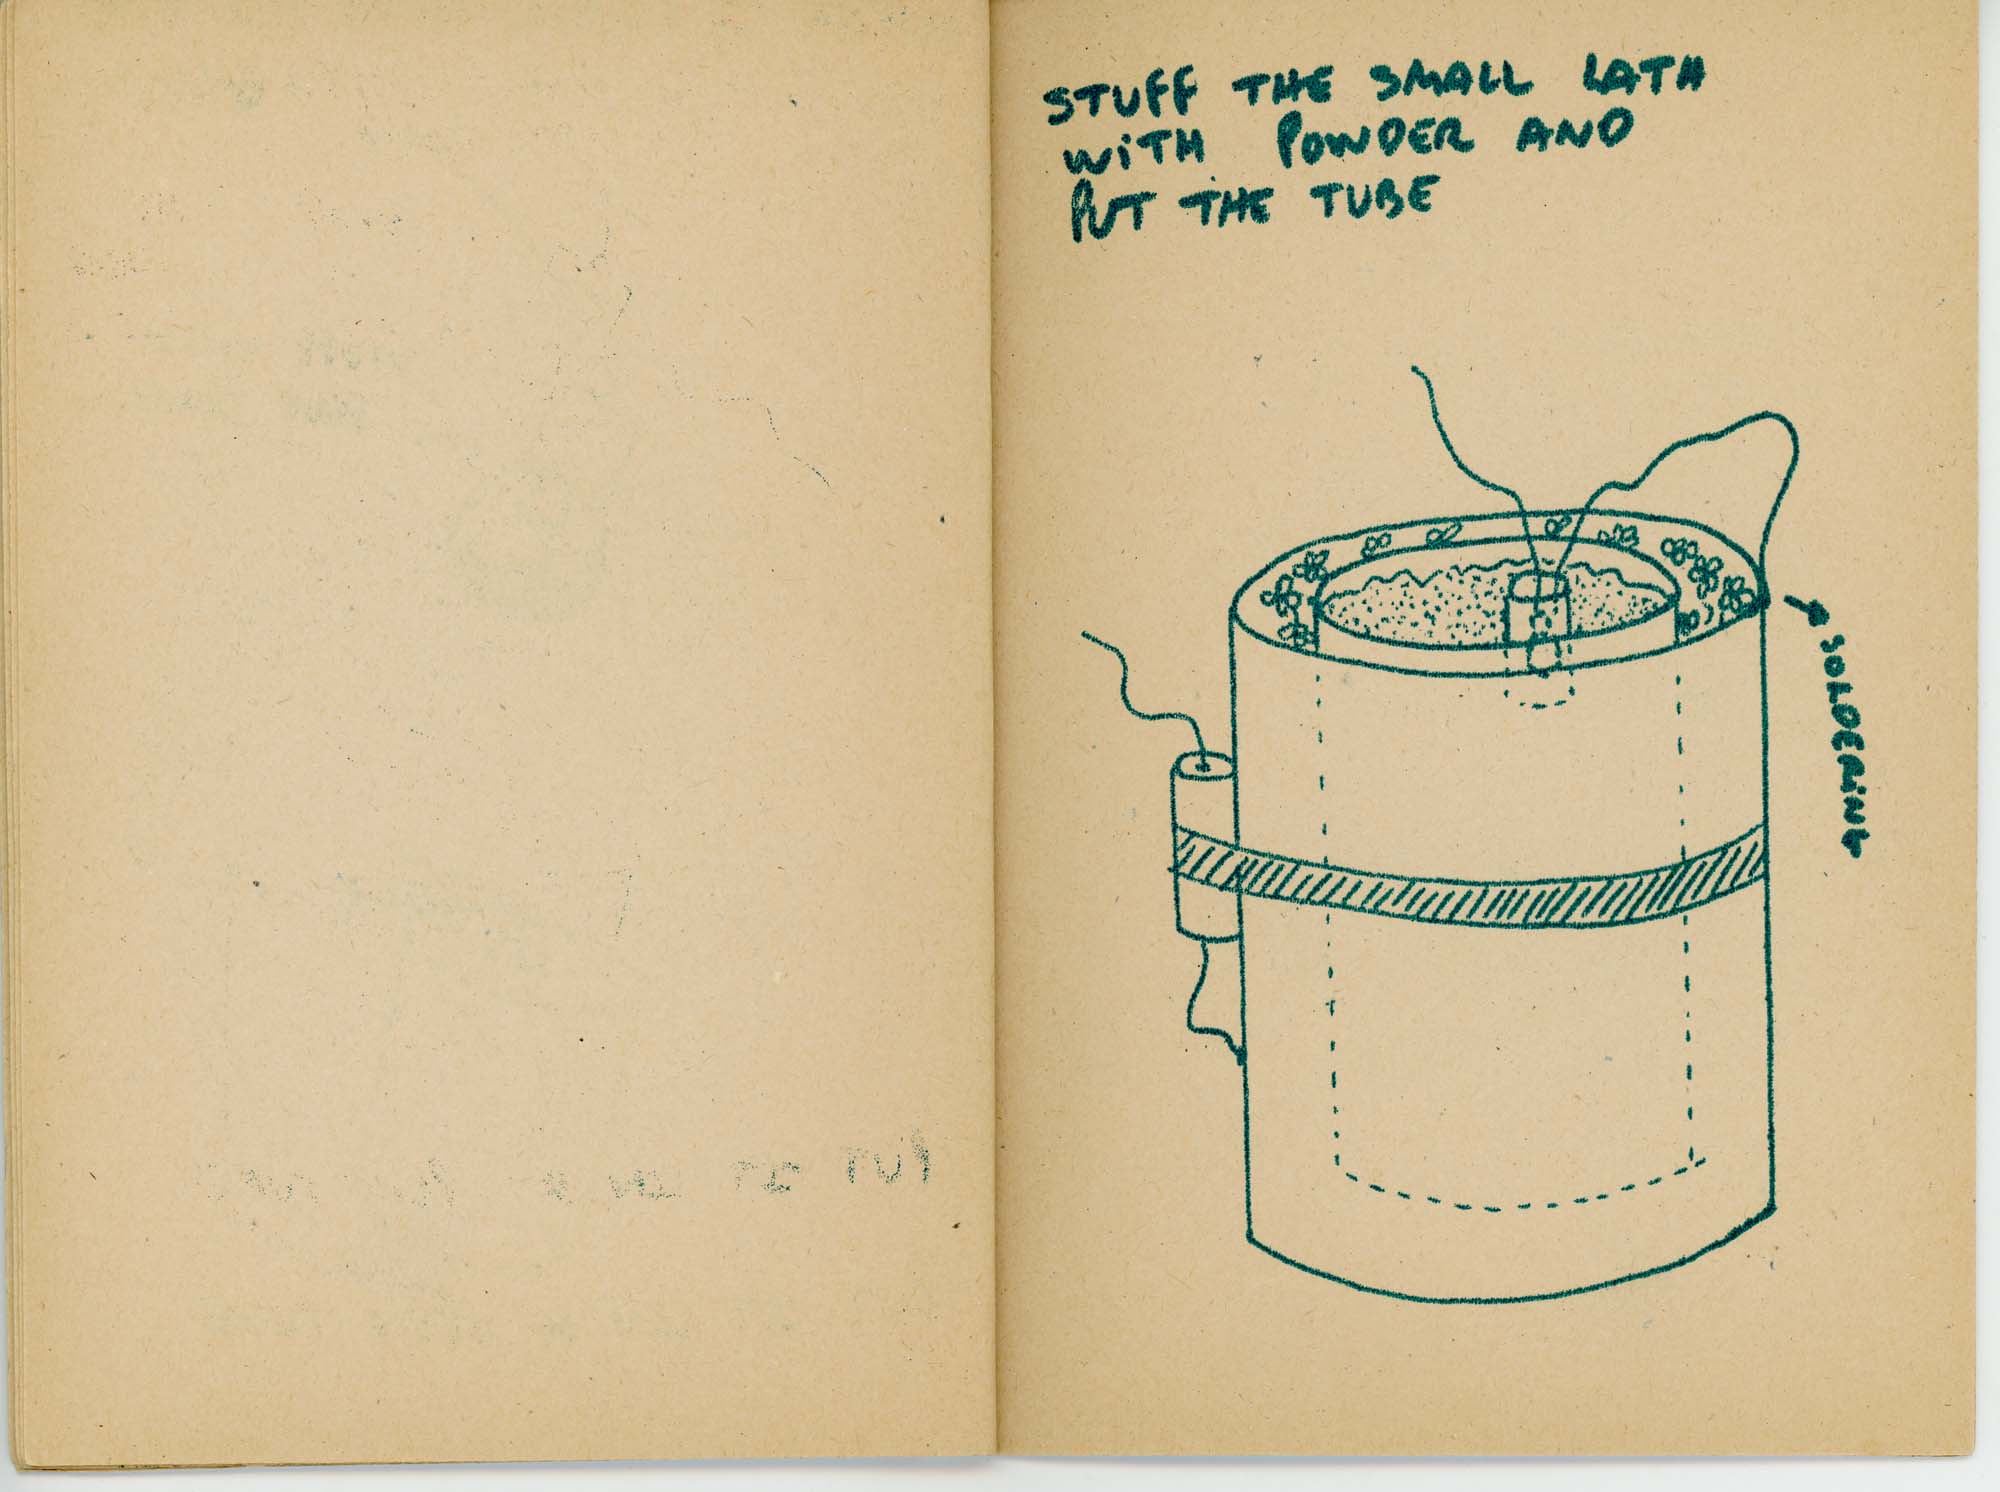 STUFF THE SMALL LATH
WITH POWDER AND
PUT THE TUBE
SOLDERING